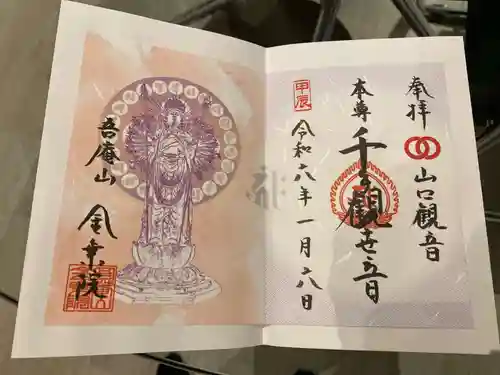 奉拝
山口観音
本尊
千手観世立日
令和六年一月六日
甲辰
吾庵山
金乗院